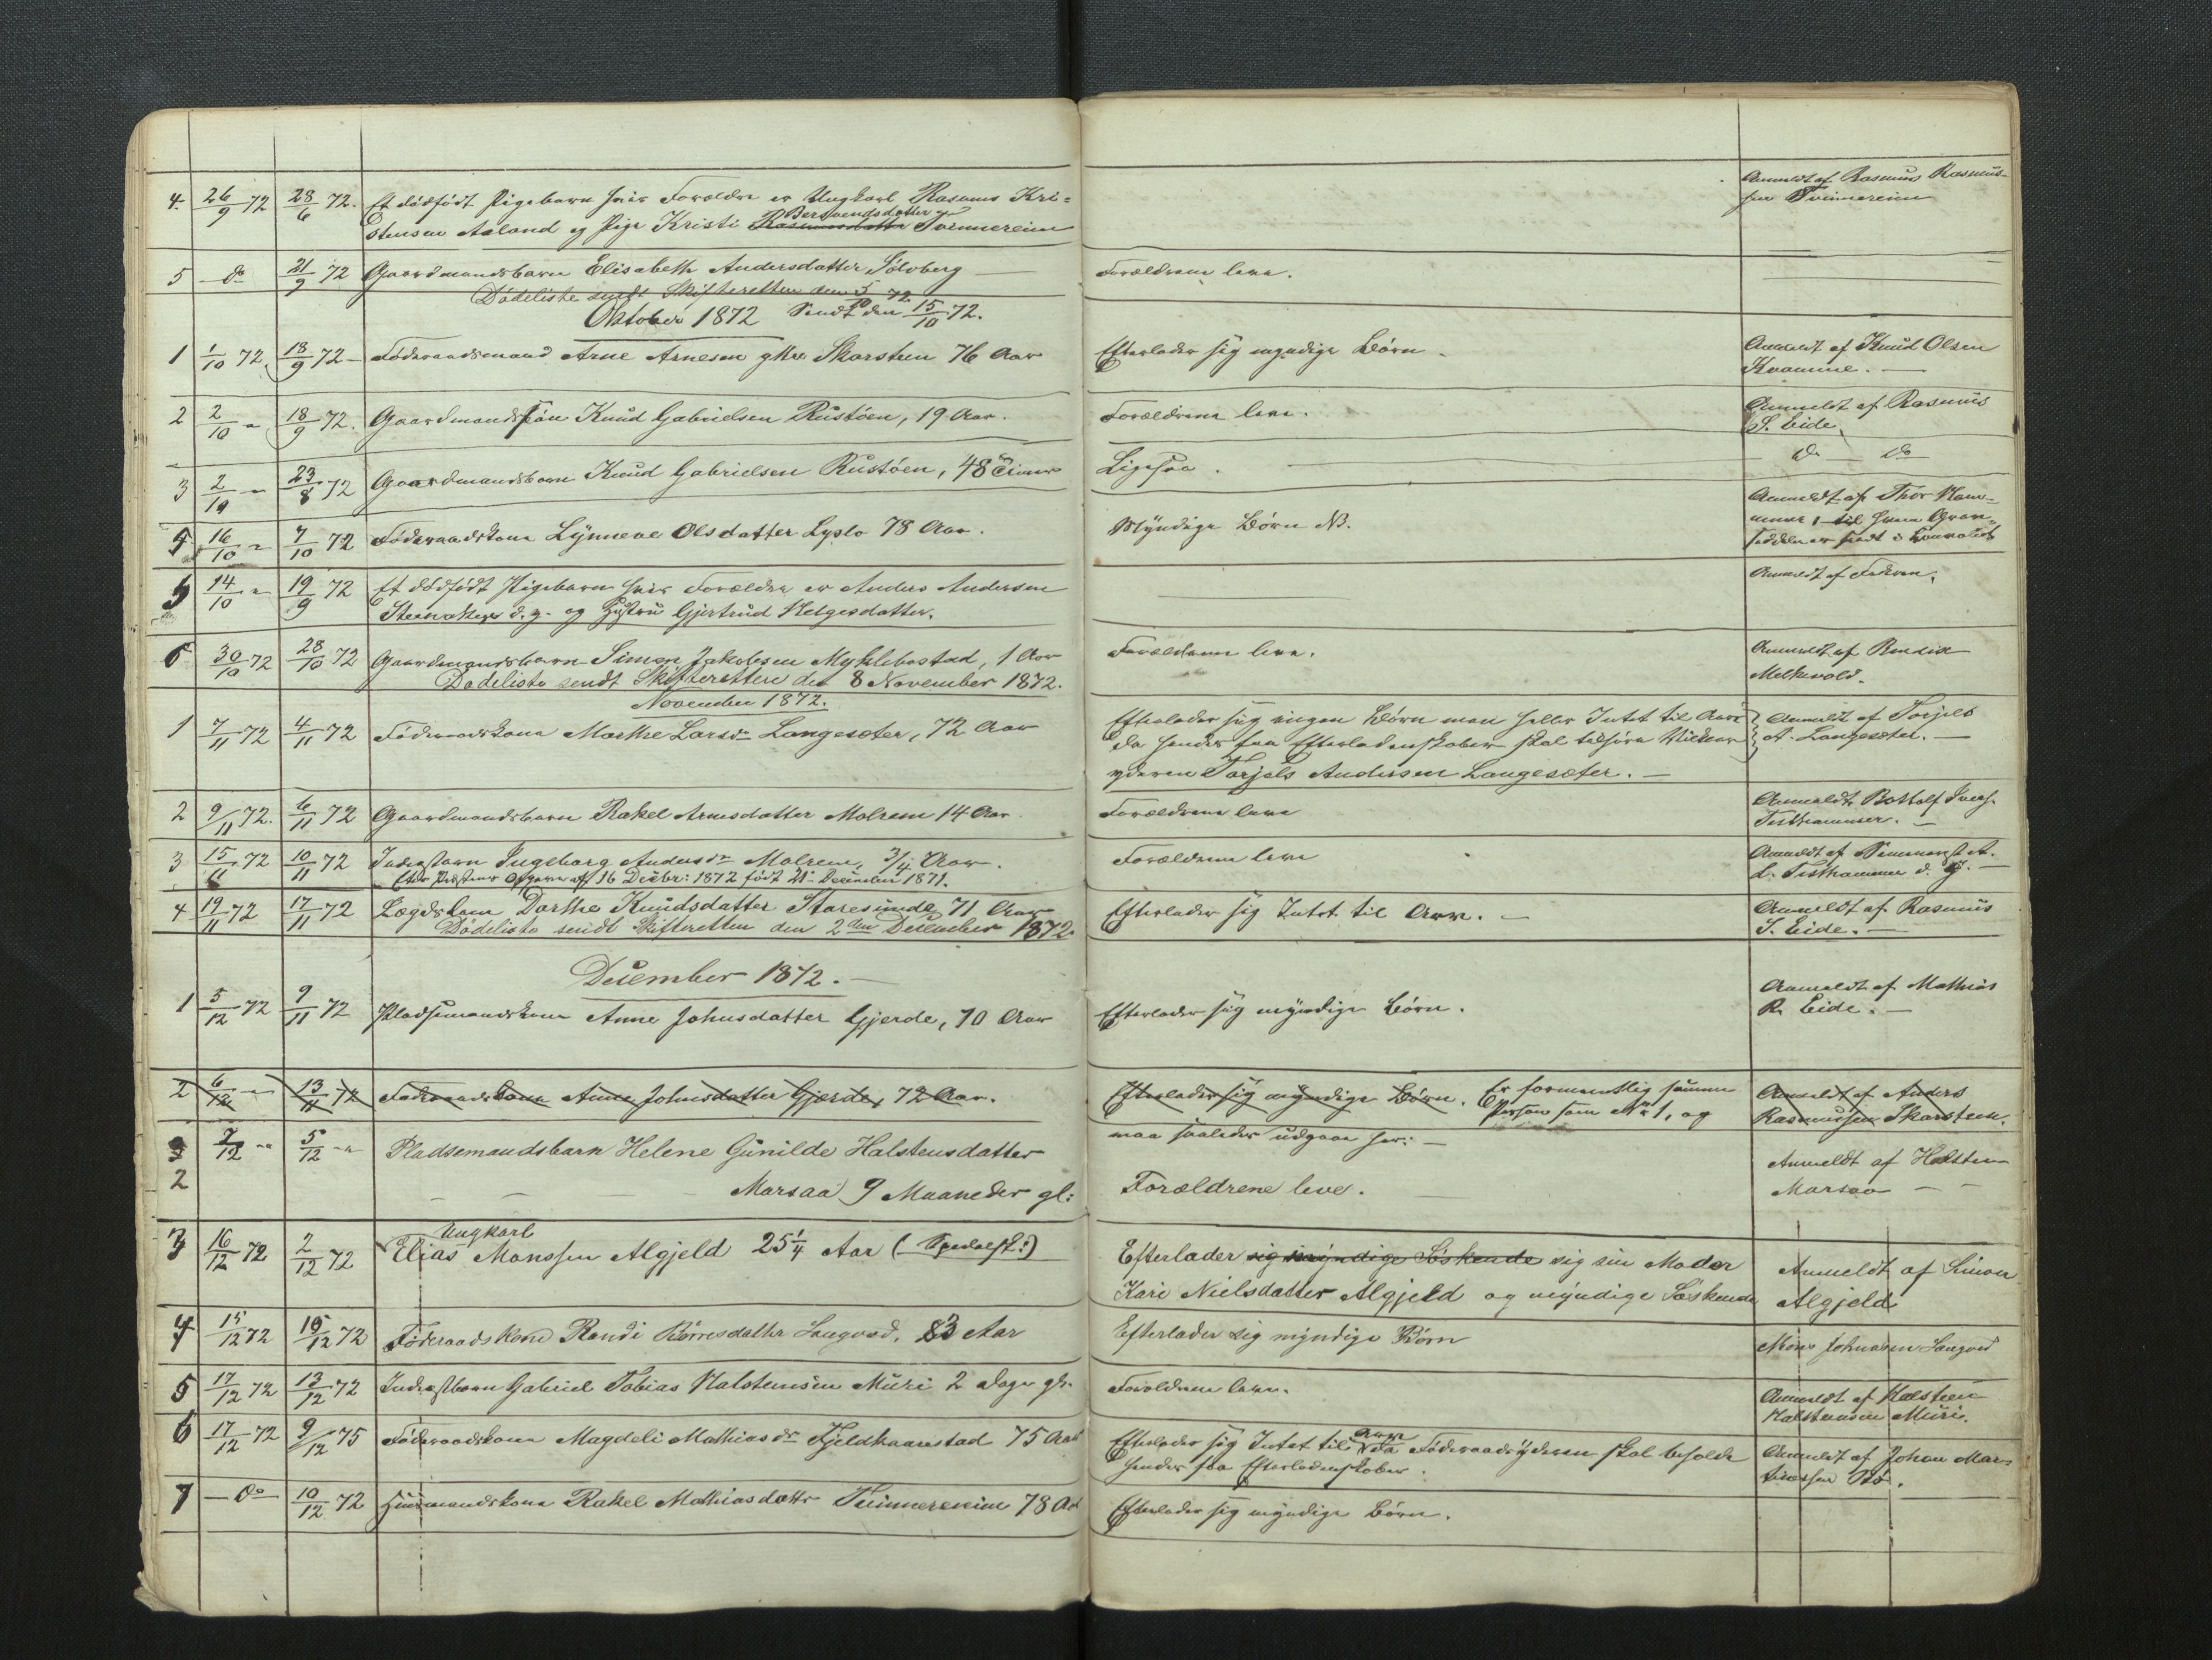 4. 26/9 72 28/6 72. Et dødfødt Pigebarn hvis Forældre er Ungkarl Rasmus Kri-
stensen Aaland og Pige Kristi Rasmusdatter Bersvendsdatter Tvinnereim
Anmeldt af Rasmus Rasmus-
sen Tvinnereim
5 do 21/9 72 Gaardmandsbarn Elisabeth Andersdatter Sølvberg
Forældrene leve.
Dødeliste sendt Skifteretten den 5/10 72.
Oktober 1872 Sendt den 15/10 72.
1 1/10 72 18/9 72 Føderaadsmand Arne Arnesen Skarsteen 76 Aar
Efterlader sig myndige Børn.
Anmeldt af Knud Olsen
Kvamme.
2 2/10 " 18/9 72. Gaardmandssøn Knud Gabrielsen Rustøen, 19 Aar.
Forældrene leve.
Anmeldt af Rasmus
S. Eide.
3 2/10 " 23/8 72 Gaardmandsbarn Knud Gabrielsen Rustøen, 48 Timer
Ligesaa.
do do
4 16/10 " 7/10 72 Føderaadskone Lynneve Olsdatter Lyslo 78 Aar.
Myndige Børn N.
Anmeldt af Thor Ham-
5 14/10 " 19/9 72 Et dødfødt Pigebarn hvis Forældre er Anders Andersen
Steenakers d. y. og Hustru Gjertrud Helgesdatter.
Anmeldt af Faderen.
6 30/10 72 28/10 72 Gaardmandsbarn Simon Jakobsen Myklebostad, 1 Aar
Forældrene leve.
Anmeldt af Bendix
Melkevold.
Dødeliste sendt Skifteretten det 8 November 1872.
November 1872.
1 7/11 72 4/11 72 Føderaadskone Marthe Larsdr Langesæter, 72 Aar
Efterlader sig ingen Børn men heller Intet til Arv
da hendes faa Efterladenskaber skal tilhøre
yderen Torjels Andersen Langesæter.
Anmeldt af Torjels
A. Langesæter.
2 9/11 72. 6/11 72 Gaardmandsbarn Rakel Arnesdatter Molrem 14 Aar.
Forældrene leve
Anmeldt Bottolf Ivers.
Tisthammer.
3 15/11 72 10/11 72 Inderstbarn Ingeborg Andersdr Molrem, 3/4 Aar.
Efter Præstens Opgave af 16 Decbr: 1872 født 21 December 1871.
Forældrene leve
Anmeldt af
L. Tisthammer d. y.
4 19/11 72 17/11 72 Lægdskone Dorthe Knudsdatter Staresunde, 71 Aar
Efterlader sig Intet til Arv.
Anmeldt af Rasmus
S. Eide.
Dødeliste sendt Skifteretten den 2den December 1872.
December 1872.
1 5/12 72 9/11 72 Pladsemandskone Anne Johnsdatter Gjerde, 70 Aar
Efterlader sig myndige Børn.
Anmeldt af Mathias
R. Eide.
2 6/12 " 13/11 72 Føderaadskone Anne Johnsdatter Gjærde, 72 Aar.
Efterlader sig myndige Børn. Er formentlig samme
Person som No 1, og
maa saaledes udgaa her:
Anmeldt af Anders
Rasmussen Skarsteen.
3 7/12 " 5/12 " Pladsemandsbarn Helene Gunilde Halstensdatter
2 Marsaa 9 Maaneder gl:
Forældrene leve.
Anmeldt af Halsten
Marsaa
3 16/12 72 2/12 72 Ungkarl
Elias Monssen Algjeld 25 1/4 Aar (Spedalsk:)
Efterlader sig myndige Søskende sig sin Moder
Kari Nielsdatter Algjeld og myndige Søskende
Anmeldt af Simon
Algjeld
4 15/12 72 15/12 72 Føderaadskone Randi Børresdatter Langved, 83 Aar
Efterlader sig myndige Børn
Mons Johnsen Langved
5 17/12 72 13/12 72 Inderstbarn Gabriel Tobias Halstensen Muri 2 Dage gl.
Forældrene leve.
Anmeldt af Halsteen
Halstensen Muri.
6 17/12 72 9/12 75 Føderaadskone Magdeli Mathiasdr Fjeldkaarstad 75 Aar
Efterlader sig Intet til Arv da Føderaadsyderen skal beholde
hendes faa Efterladenskaber.
Anmeldt af Johan Mar-
tinussen Bø.
7 do 10/12 72 Huusmandskone Rakel Mathiasdattr Tvinnereim 78 Aar
Efterlader sig myndige Børn.